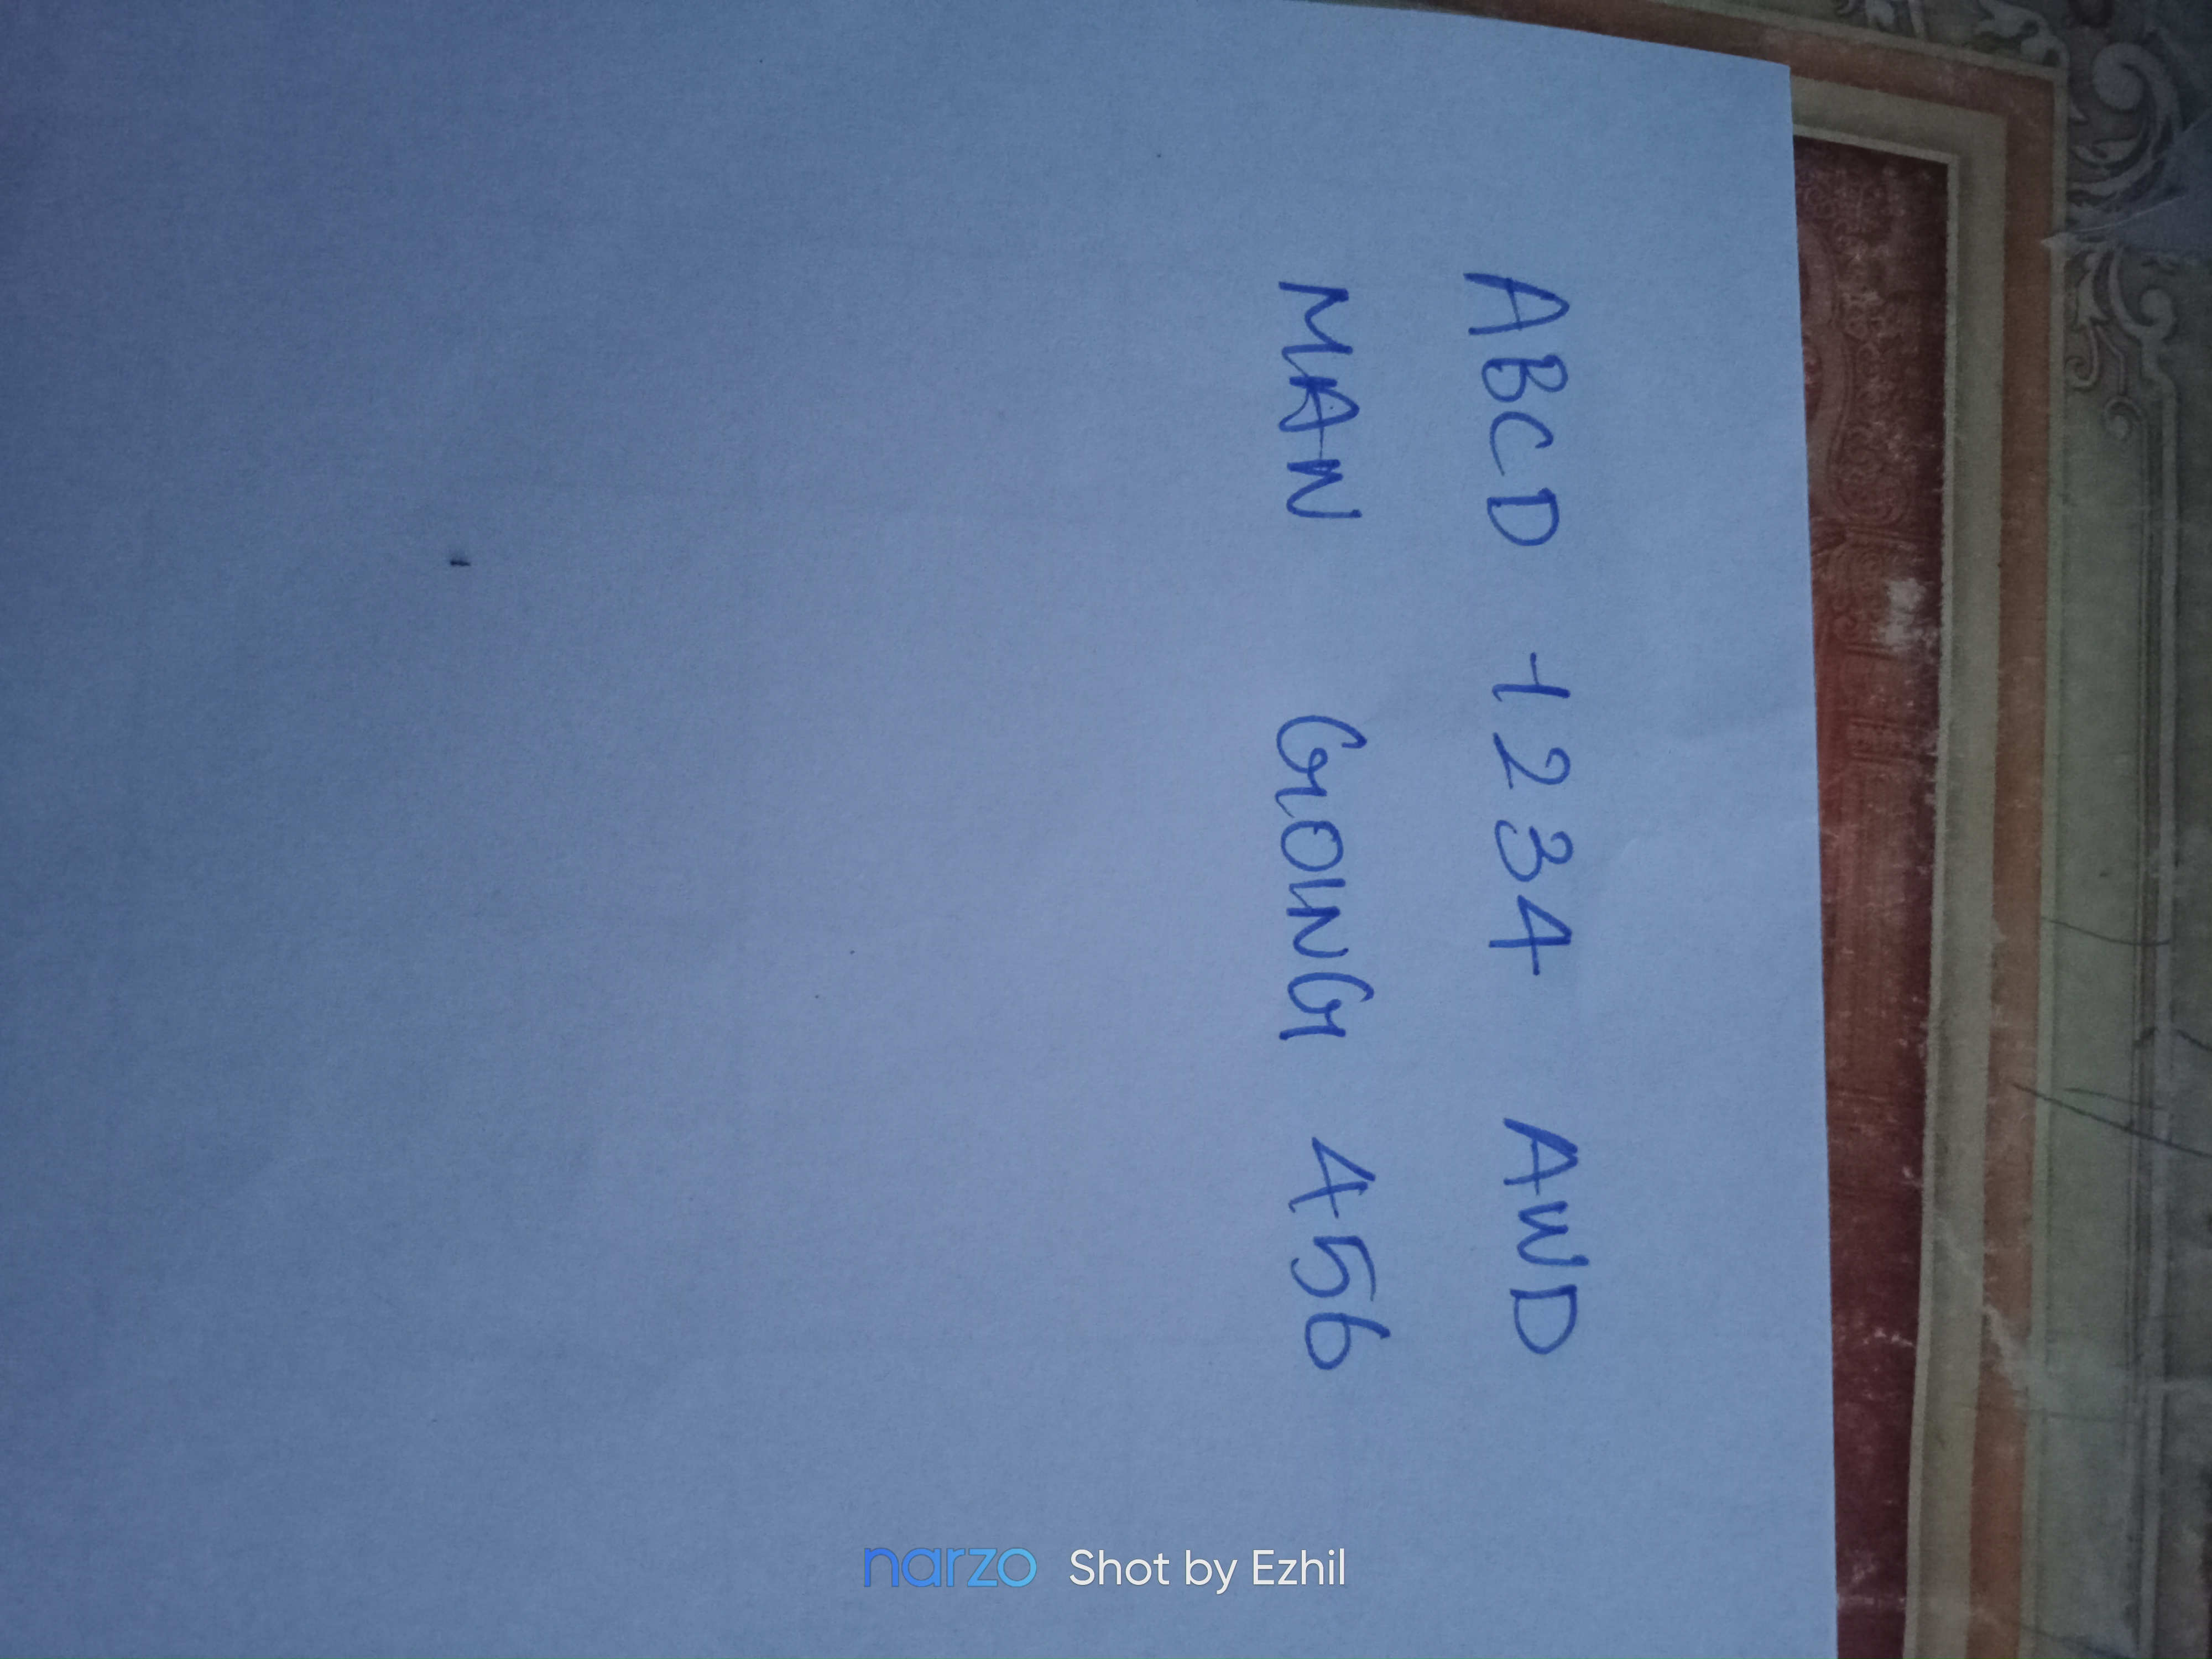 ABCD 1234 AWD
MAN GOING 456
narzo Shot by Ezhil